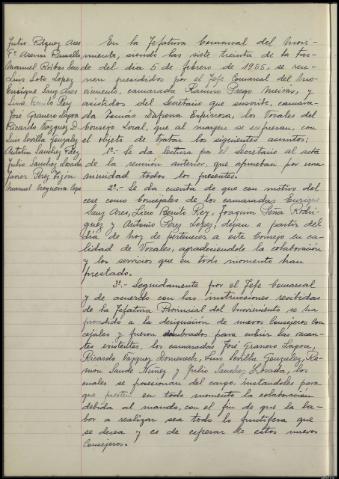 Julio Vázquez Ares
Mª Asunción
Manuel Roibás
Luis Soto López
Enrique Saez Ares
Luis Benito Rey
José Granero Lagoa
Ricardo Vázquez D.
Luis Varilla González
Antolín Sánchez Pérez
Julio Sánchez Losada
Javier Pérez
Manuel Nogueira
En la Jefatura Comarcal del Movi-
miento, siendo las siete treinta de la tar-
de del día 5 de febrero de 1965, se reu-
nen presididos por el Jefe Comarcal del Mo-
vimiento, camarada Ramón Prego Meirás, y
asistidos del Secretario que suscribe, camara-
da Tomás Dafrena Espinosa, los Vocales del
Consejo Local, que al margen se expresan, con
el objeto de tratar los siguientes asuntos:
1º.- Se da lectura por el Secretario al acta
de la reunión anterior, que aprueban por una-
nimidad todos los presentes.
2º.- Se da cuenta de que con motivo del
cese como Concejales de los camaradas Enrique
Saez Ares, Luis Benito Rey, Joaquín Peña Rodrí-
guez y Antonio Pérez López, dejan a partir del
día de hoy de pertenecer a este Consejo su ca-
lidad de Vocales, agradeciéndole la colaboración
y los servicios que en todo momento han
prestado.
3º.- Seguidamente por el Jefe Comarcal
y de acuerdo con las instrucciones recibidas
de la Jefatura Provincial del Movimiento se ha
procedido a la designación de nuevos Consejeros con-
cejales y fueron nombrados para cubrir las vacan-
tes existentes, los camaradas José Granero Lagoa,
Ricardo Vázquez Doncevedo, Luis Varilla González, Ra-
món Saude Núñez y Julio Sánchez Losada, los
cuales se posesionan del cargo, instándoles para
que presten en todo momento la colaboración
debida al mando, con el fin de que la la-
bor a realizar sea todo lo fructífera que
se desea y es de esperar de estos nuevos
Consejeros.